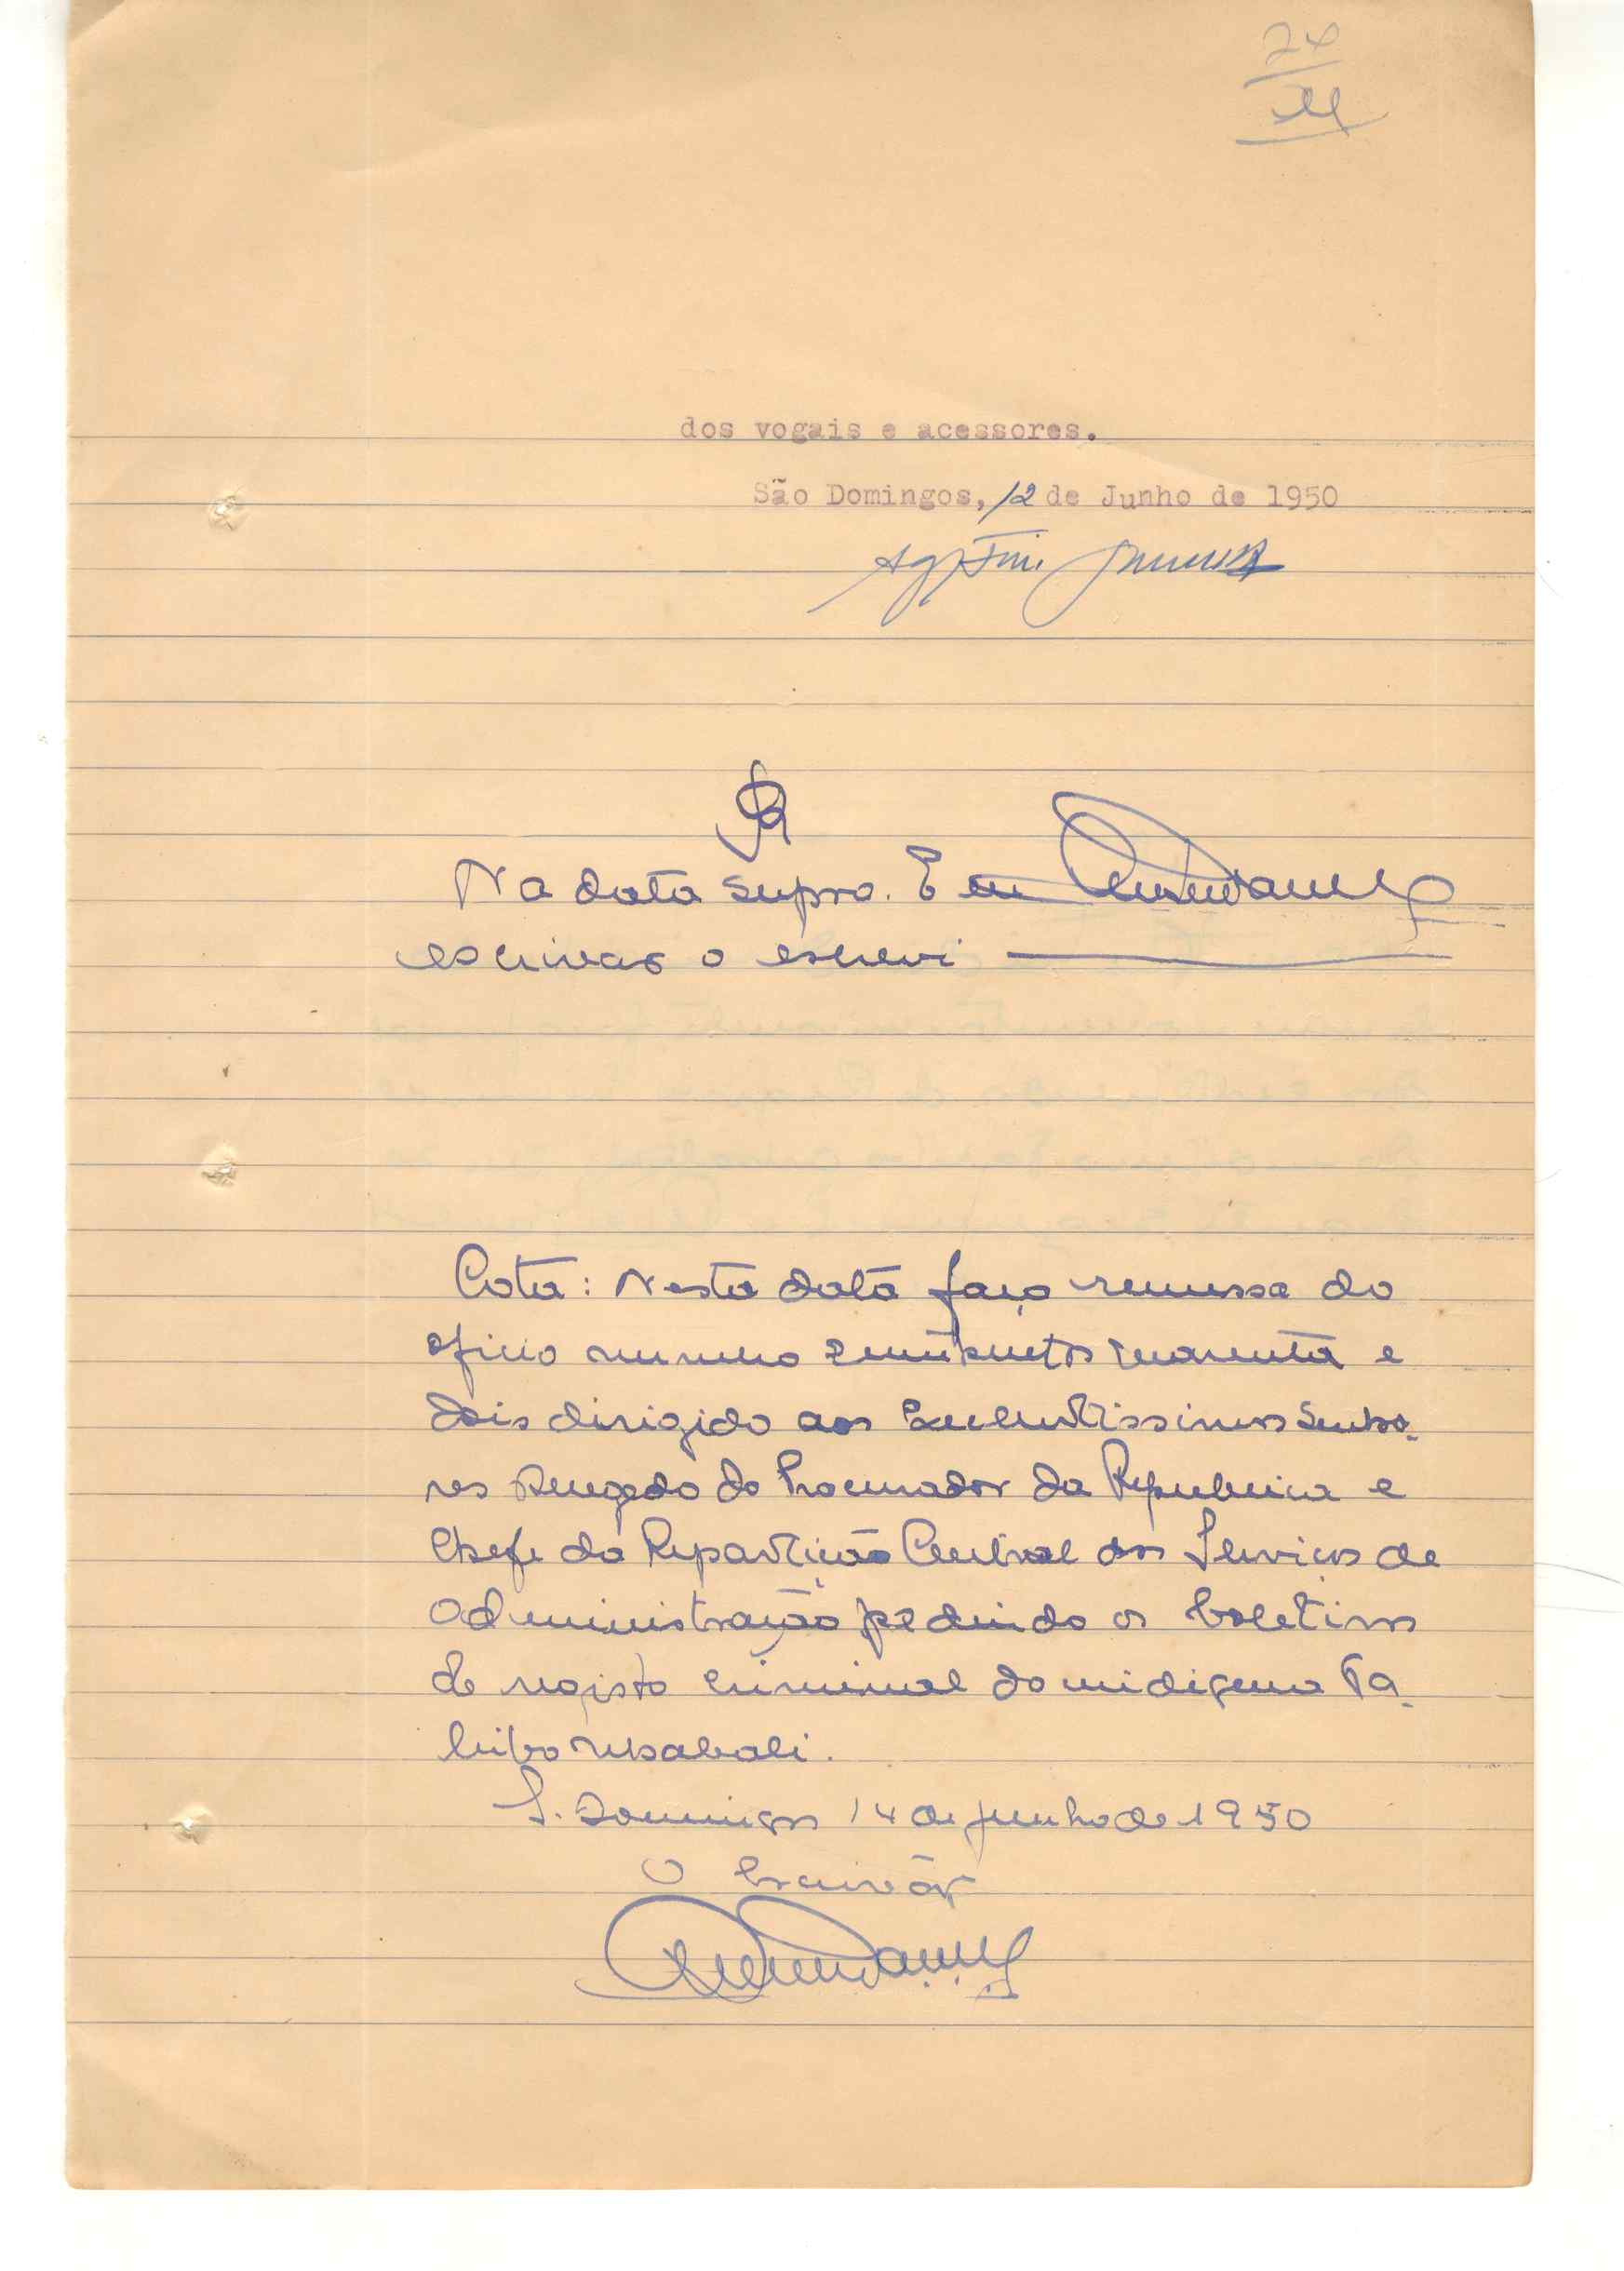 24
dos vogais e acessores.
São Domingos, 12 de Junho de 1950
Na data supra. E eu
escrivão o escrevi
Cota: Nesta data faço remessa do
oficio numero quarenta e
dois dirigido aos Excelentissimos Senho-
res Delegado do Procurador da Republica e
Chefe da Repartição Central dos Serviços de
Administração pedindo os boletins
do registo criminal do indigena
S. Domingos 14 de junho de 1950
O Escrivão